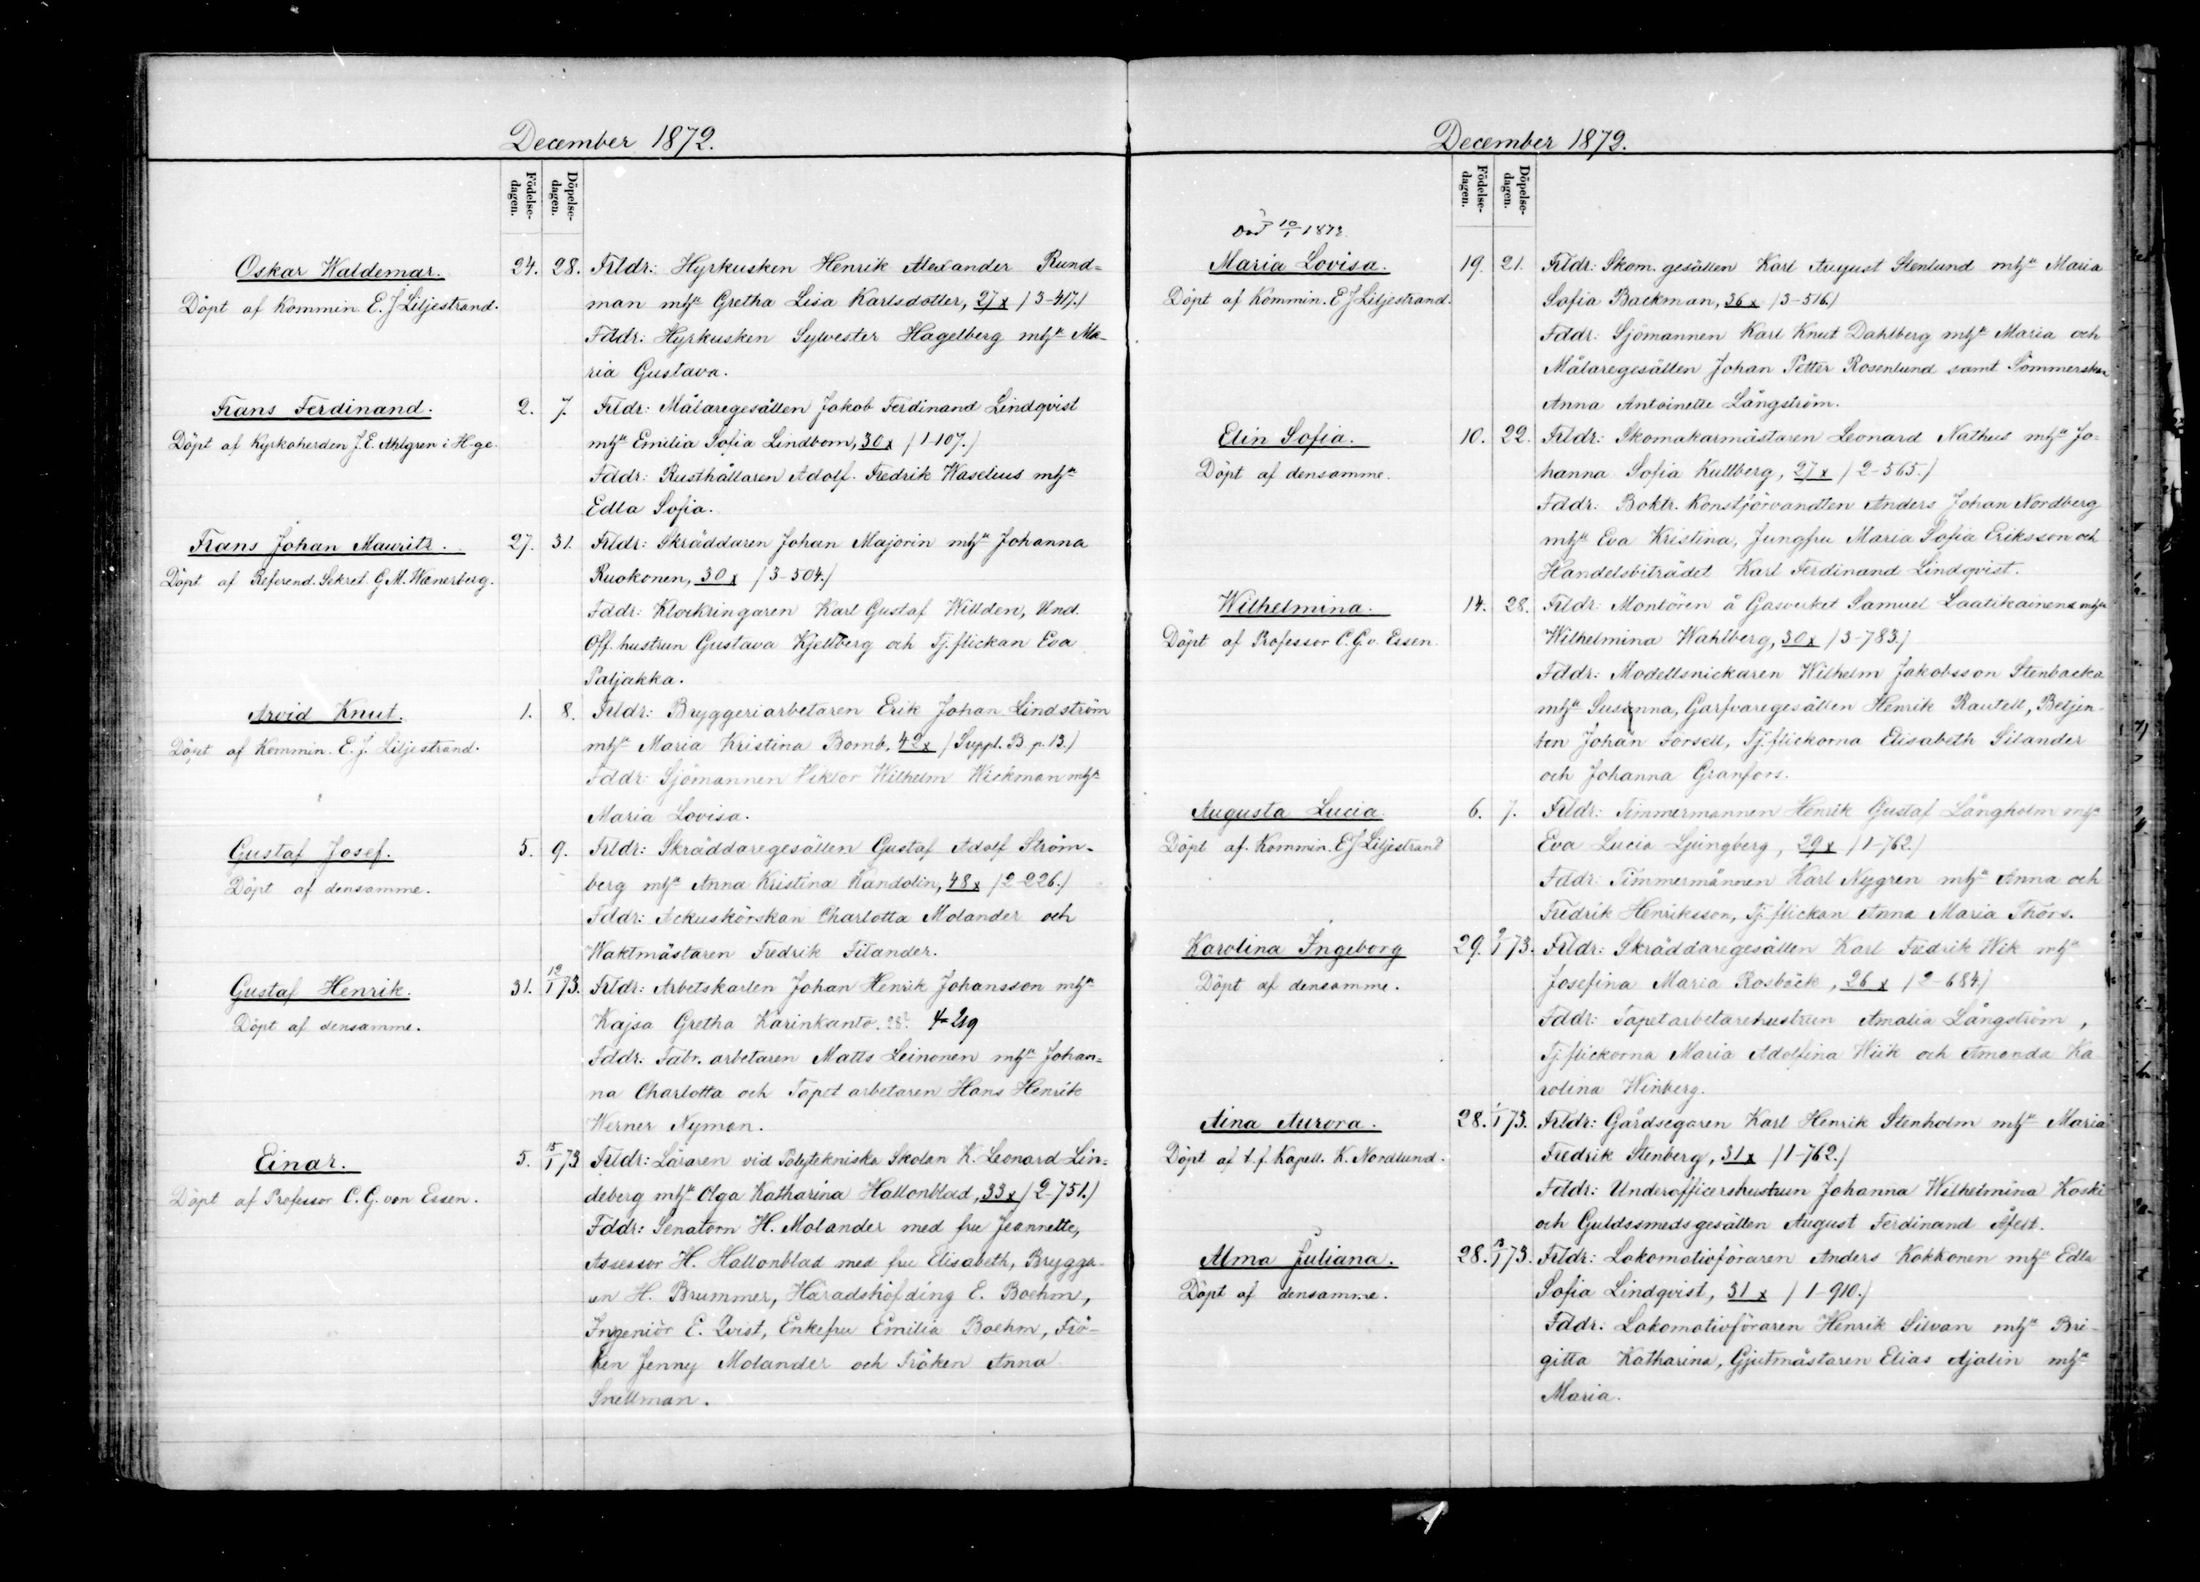 December 1872.
Födelse-
dagen.
Döpelse-
dagen.
Oskar Waldemar. 24. 28. Frldr: Hyrkusken Henrik Alexander Rund=
Döpt af Kommin. E. J. Liljestrand. man mhu Gretha Lisa Karlsdotter, 27 x /3-417./
Fddr: Hyrkusken Sylvester Hagelberg mhu Ma-
ria Gustava.
Frans Ferdinand. 2. 7. Frldr: Målaregesällen Jakob Ferdinand Lindqvist
Döpt af Kyrkoherden J. E. Ahlgren i H-ge. mhu Emilia Sofia Lindbom, 30 x /1-107./
Fddr: Rusthållaren Adolf Fredrik Waselius mhu
Edla Sofia.
Frans Johan Mauritz. 27. 31. Frldr: Skräddaren Johan Majorin mhu Johanna
Döpt af Referend. Sekret. G. M. Wænerberg. Ruokonen, 30 x /3-504./
Fddr: Klockringaren Karl Gustaf Willden, Und.
Off. hustrun Gustava Kjellberg och Tj. flickan Eva
Paljakka.
Arvid Knut. 1. 8. Frldr: Bryggeriarbetaren Erik Johan Lindström
Döpt af Kommin. E. J. Liljestrand. mhu Maria Kristina Bomb, 42 x /Suppl. B. p. 13./
Fddr: Sjömannen Viktor Wilhelm Wickman mhu
Maria Lovisa.
Gustaf Josef. 5. 9. Frldr: Skräddaregesällen Gustaf Adolf Ström-
Döpt af densamme. berg mhu Anna Kristina Kandolin, 48 x /2-226./
Fddr: Ackuskörskan Charlotta Molander och
Waktmästaren Fredrik Silander.
Gustaf Henrik. 31. 12/1 73. Frldr: Arbetskarlen Johan Henrik Johansson mhu
Döpt af densamme. Kajsa Gretha Karinkanto. 28? 4-219
Fddr: Fabr. arbetaren Matts Leinonen mhu Johan=
na Charlotta och Tapet arbetaren Hans Henrik
Werner Nyman.
Einar. 5. 15/1 73 Frldr: Läraren vid Polytekniska Skolan K. Leonard Lin=
Döpt af Professor C. G. von Essen. deberg mhu Olga Katharina Hallonblad, 33 x /2-751./
Fddr: Senatorn H. Molander med fru Jeannette,
Assessor H. Hallonblad med fru Elisabeth, Brygga-
en H. Brummer, Häradshöfding E. Boehm,
Ingeniör E. Qvist, Enkefru Emilia Boehm, Frö-
ken Jenny Molander och Fröken Anna
Snellman.
December 1872.
Födelse-
dagen.
Döpelse-
dagen.
Död 10/1 1873.
Maria Lovisa. 19. 21. Frldr: Skom. gesällen Karl August Stenlund mhu Maria
Döpt af Kommin. E J Liljestrand. Sofia Backman, 36 x /3-516./
Fddr: Sjömannen Karl Knut Dahlberg mhu Maria och
Målaregesällen Johan Petter Rosenlund samt Sömmerskan
Anna Antoinette Långström.
Elin Sofia. 10. 22. Frldr: Skomakarmästaren Leonard Nathus mhu Jo-
Döpt af densamme. hanna Sofia Kullberg, 27 x /2-565./
Fddr: Boktr. Konstförvandten Anders Johan Nordberg
mhu Eva Kristina, Jungfru Maria Sofia Eriksson och
Handelsbiträdet Karl Ferdinand Lindqvist.
Wilhelmina. 14. 28. Frldr: Montören å Gasverket Samuel Laatikainens mhu
Döpt af Professor C. G. v. Essen. Wilhelmina Wahlberg, 30 x /3-783./
Fddr: Modellsnickaren Wilhelm Jakobsson Stenbacka
mhu Susanna, Garfvaregesällen Henrik Rautell, Betjen-
ten Johan Forsell, Tj. flickorna Elisabeth Silander
och Johanna Granfors.
Augusta Lucia. 6. 7. Frldr: Timmermannen Henrik Gustaf Långholm mhu
Döpt af Kommin. E J Liljestrand Eva Lucia Ljungberg, 29 x /1-762./
Fddr: Timmermännen Karl Nygren mhu Anna och
Fredrik Henriksson, Tj. flickan Anna Maria Thors.
Karolina Ingeborg 29. 2/1 73. Frldr: Skräddaregesällen Karl Fredrik Wik mhu
Döpt af densamme. Josefina Maria Rosbäck, 26 x /2-684./
Fddr: Tapetarbetarehustrun Amalia Långström,
Tj. flickorna Maria Adolfina Wiik och Amanda Ka
rolina Winberg.
Aina Aurora. 28. 1/1 73. Frldr: Gårdsegaren Karl Henrik Stenholm mhu Maria
Döpt af t. f. Kapell. K. Nordlund. Fredrik Stenberg, 31 x /1-762./
Fddr: Underofficershustrun Johanna Wilhelmina Koski
och Guldssmedsgesällen August Ferdinand Åfelt.
Alma Juliana. 28. 13/1 73. Frldr: Lokomotivföraren Anders Kokkonen mhu Edla
Döpt af densamme. Sofia Lindqvist, 31 x /1-910./
Fddr: Lokomotivföraren Henrik Silvan mhu Bri-
gitta Katharina, Gjutmästaren Elias Ajalin mhu
Maria.